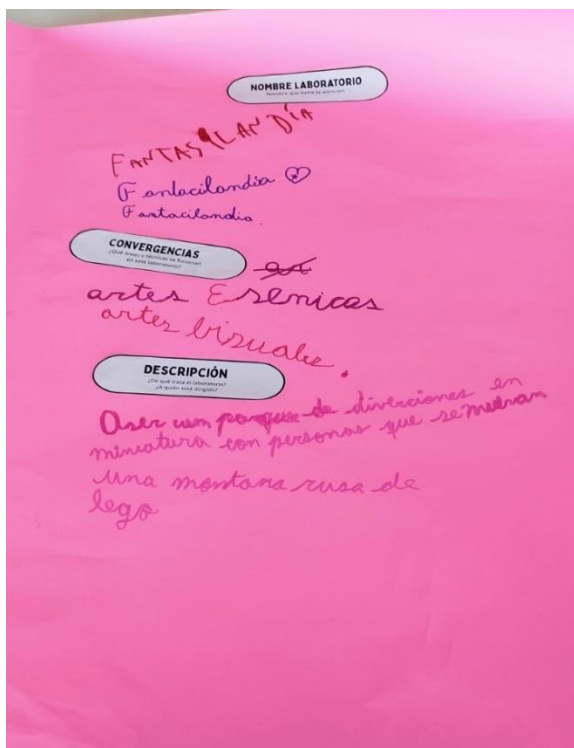 NOMBRE LABORATORIO
FANTASILANDÍA
Fantacilandia
Fantacilandia.
CONVERGENCIAS
¿Qué áreas o técnicas se fusionan
en este laboratorio?
artes Esenicas
artes bizuales.
DESCRIPCIÓN
¿De qué trata el laboratorio?
¿A quién está dirigido?
Aser um parque de diverciones en
miniatura con personas que se muevan
una montana rusa de
lego